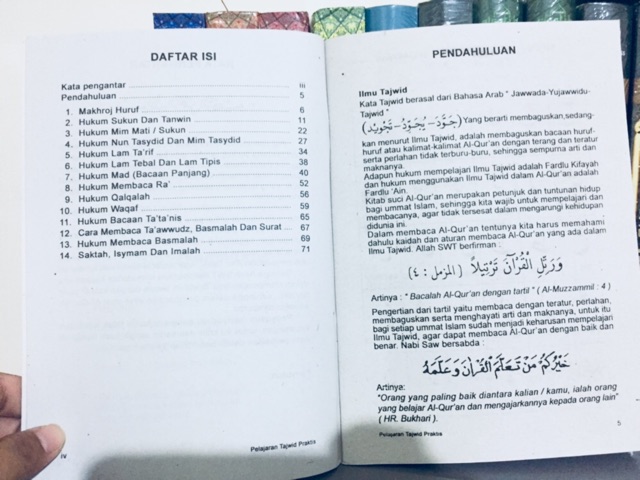 DAFTAR ISI
Kata pengantar ........ iii
Pendahuluan ........ 5
1. Makhroj Huruf ........ 6
2. Hukum Sukun Dan Tanwin ........ 11
3. Hukum Mim Mati / Sukun ........ 22
4. Hukum Nun Tasydid Dan Mim Tasydid ........ 27
5. Hukum Lam Ta'rif ........ 34
6. Hukum Lam Tebal Dan Lam Tipis ........ 38
7. Hukum Mad (Bacaan Panjang) ........ 40
8. Hukum Membaca Ra' ........ 52
9. Hukum Qalqalah ........ 56
10. Hukum Waqaf ........ 59
11. Hukum Bacaan Ta'ta'nis ........ 65
12. Cara Membaca Ta'awwudz, Basmalah Dan Surat ... 67
13. Hukum Membaca Basmalah ........ 69
14. Saktah, Isymam Dan Imalah ........ 71
iv
Pelajaran Tajwid Praktis
PENDAHULUAN
Ilmu Tajwid
Kata Tajwid berasal dari Bahasa Arab " Jawwada-Yujawwidu-
Tajwid "
(جَوَّدَ - يُجَوِّدُ - تَجْوِيْد) Yang berarti membaguskan,sedang-
kan menurut Ilmu Tajwid, adalah membaguskan bacaan huruf-
huruf atau kalimat-kalimat Al-Qur'an dengan terang dan teratur
serta perlahan tidak terburu-buru, sehingga sempurna arti dan
maknanya.
Adapun hukum mempelajari Ilmu Tajwid adalah Fardlu Kifayah
dan hukum menggunakan Ilmu Tajwid dalam Al-Qur'an adalah
Fardlu 'Ain.
Kitab suci Al-Qur'an merupakan petunjuk dan tuntunan hidup
bagi ummat Islam, sehingga kita wajib untuk mempelajari dan
membacanya, agar tidak tersesat dalam mengarungi kehidupan
didunia ini.
Dalam membaca Al-Qur'an tentunya kita harus memahami
dahulu kaidah dan aturan membaca Al-Qur'an yang ada dalam
Ilmu Tajwid. Allah SWT berfirman :
وَرَتِّلِ الْقُرْآنَ تَرْتِيْلاً (المزمل : ٤)
Artinya : " Bacalah Al-Qur'an dengan tartil" ( Al-Muzzammil : 4 )
Pengertian dari tartil yaitu membaca dengan teratur, perlahan,
membaguskan serta menghayati arti dan maknanya, untuk itu
bagi setiap ummat Islam sudah menjadi keharusan mempelajari
Ilmu Tajwid, agar dapat membaca Al-Qur'an dengan baik dan
benar. Nabi Saw bersabda :
خَيْرُكُمْ مَنْ تَعَلَّمَ الْقُرْاٰنَ وَعَلَّمَهُ
Artinya:
"Orang yang paling baik diantara kalian / kamu, ialah orang
yang belajar Al-Qur'an dan mengajarkannya kepada orang lain"
( HR. Bukhari ).
Pelajaran Tajwid Praktis
5